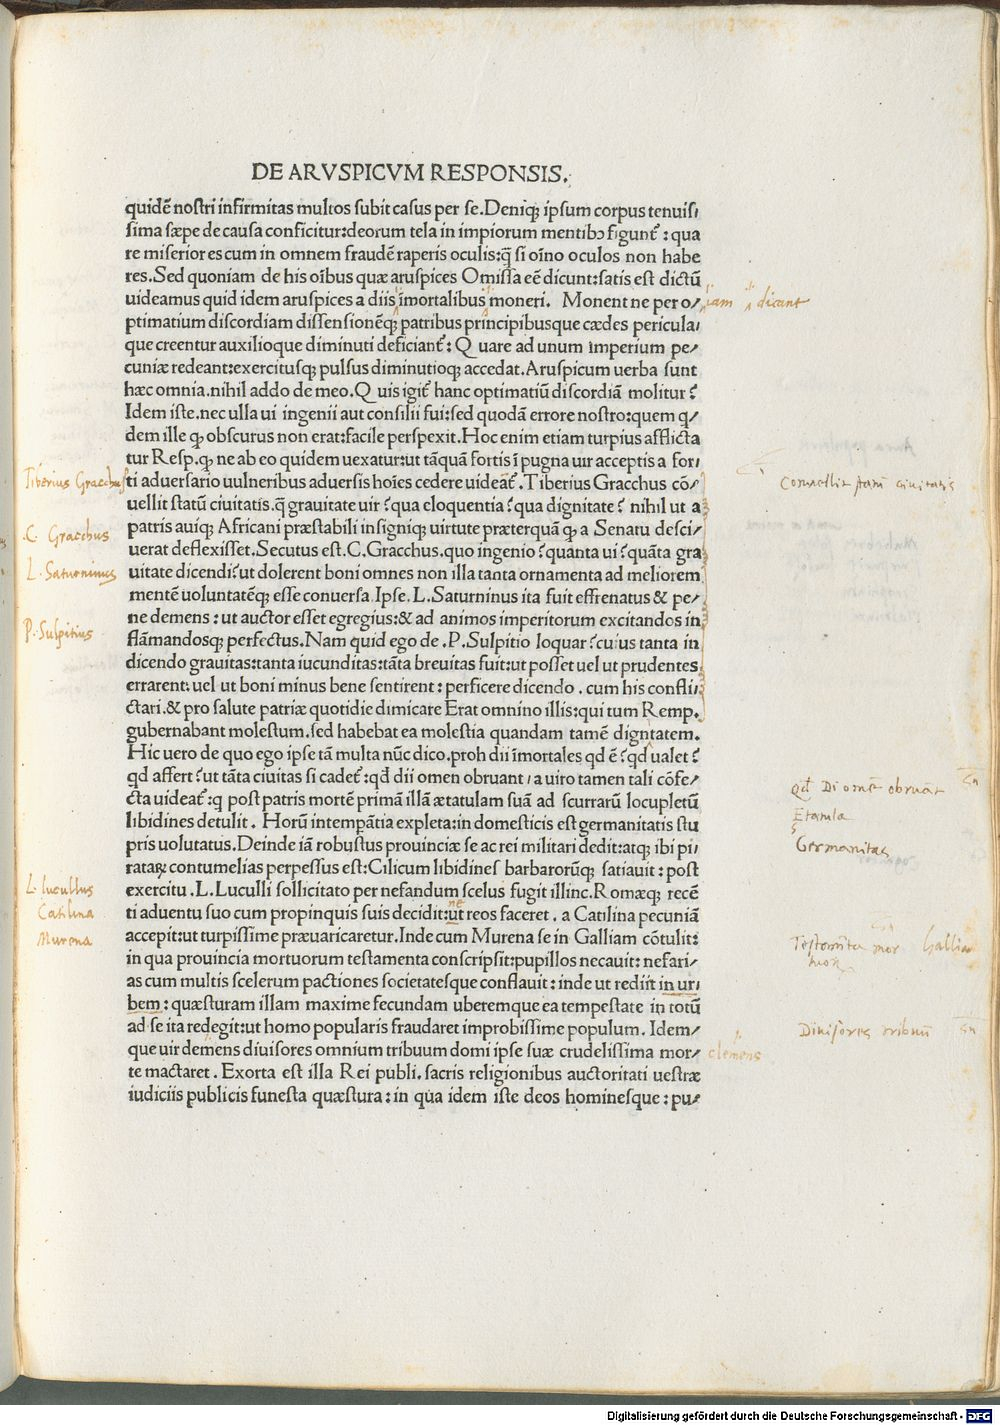 DE ARVSPICVM RESPONSIS.
quidē nostri infirmitas multos subit casus per se. Deniq; ipsum corpus tenuis/
sima sæpe de causa conficitur: deorum tela in impiorum mentibꝫ figunt̃: qua
re miserior es cum in omnem fraudē raperis oculis: q̄ si oīno oculos non habe
res. Sed quoniam de his oībus quæ aruspices Omissa eē dicunt: satis est dictū
uideamus quid idem aruspices a diis īmortalibus moneri. Monent ne per o/
iam dicant
ptimatium discordiam dissensionēq; patribus principibusque cædes pericula/
que creentur auxilioque diminuti deficiant̃: Quare ad unum imperium pe/
cuniæ redeant: exercitusq; pulsus diminutioq; accedat. Aruspicum uerba sunt
hæc omnia. nihil addo de meo. Quis igit̃ hanc optimatiū discordiā molitur?
Idem iste. nec ulla ui ingenii aut consilii fui: sed quodā errore nostro: quem q/
dem ille ꝙ obscurus non erat: facile perspexit. Hoc enim etiam turpius afflicta
tur Resp. ꝙ ne ab eo quidem uexatur: ut tāquā fortis ī pugna uir acceptis a for/
Tiberius Gracchus
ti aduersario uulneribus aduersis hoīes cedere uideat̃. Tiberius Gracchus cō/
uellit statū ciuitatis. q̄ grauitate uir? qua eloquentia? qua dignitate? nihil ut a
patris auiq; Africani præstabili insigniq; uirtute præterquā ꝙ a Senatu desci/
C. Gracchus
uerat deflexisset. Secutus est. C. Gracchus. quo ingenio? quanta ui? quāta gra
L. Saturninus
uitate dicendi? ut dolerent boni omnes non illa tanta ornamenta ad meliorem
mentē uoluntatēq; esse conuersa. Ipse. L. Saturninus ita fuit effrenatus & pe/
ne demens: ut auctor esset egregius: & ad animos imperitorum excitandos in
P. Sulpitius
flāmandosq; perfectus. Nam quid ego de. P. Sulpitio loquar? cuius tanta in
dicendo grauitas: tanta iucunditas: tāta breuitas fuit: ut posset uel ut prudentes
errarent: uel ut boni minus bene sentirent: perficere dicendo. cum his confli/
ctari. & pro salute patriæ quotidie dimicare Erat omnino illis: qui tum Remp.
gubernabant molestum. sed habebat ea molestia quandam tamē digntatem.
Hic uero de quo ego ipse tā multa nūc dico. proh dii īmortales qd ē? qd ualet?
qd affert? ut tāta ciuitas si cadet̃: qd dii omen obruant / a uiro tamen tali cōfe/
Qd Di omē obruāt
cta uideat̃: q post patris mortē primā illā ætatulam suā ad scurrarū locupletū
Etatula
libidines detulit. Horū intempātia expleta: in domesticis est germanitatis stu
Germanitas
pris uolutatus. Deinde iā robustus prouinciæ se ac rei militari dedit: atq; ibi pi/
ratarꝝ contumelias perpessus est: Cilicum libidines barbarorūq; satiauit: post
L. lucullus
exercitu. L. Luculli sollicitato per nefandum scelus fugit illinc. Romæq; recē
Catilina
ti aduentu suo cum propinquis suis decidit: ut reos faceret. a Catilina pecuniā
ne
Murena
accepit: ut turpissime præuaricaretur. Inde cum Murena se in Galliam cōtulit:
in qua prouincia mortuorum testamenta conscripsit: pupillos necauit: nefari/
as cum multis scelerum pactiones societatesque conflauit: inde ut rediit in ur/
bem: quæsturam illam maxime fecundam uberemque ea tempestate in totū
ad se ita redegit: ut homo popularis fraudaret improbissime populum. Idem/
Diuisores tribuū
que uir demens diuisores omnium tribuum domi ipse suæ crudelissima mor/
clemens
te mactaret. Exorta est illa Rei publi. sacris religionibus auctoritati uestræ
iudiciis publicis funesta quæstura: in qua idem iste deos hominesque: pu/
Digitalisierung gefördert durch die Deutsche Forschungsgemeinschaft - DFG